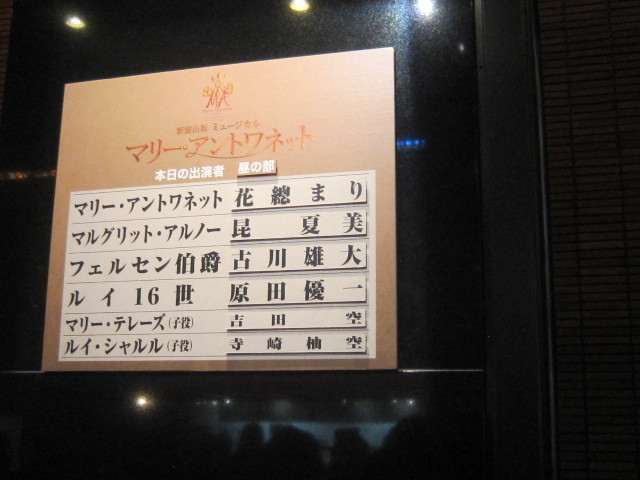 MA
新演出版 ミュージカル
マリー・アントワネット
本日の出演者 昼の部
マリー・アントワネット 花總まり
マルグリット・アルノー 昆夏美
フェルセン伯爵 古川雄大
ルイ16世 原田優一
マリー・テレーズ(子役) 吉田空
ルイ・シャルル(子役) 寺崎柚空